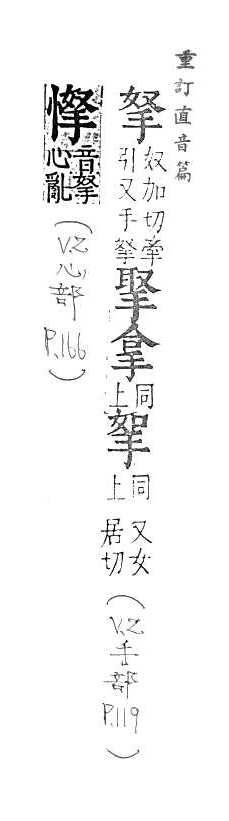 重訂直音篇
拏奴加切牽引又手拏拿同上挐同上又女居切(V.2手部P.119)
音拏心亂(V.2心部P.166)